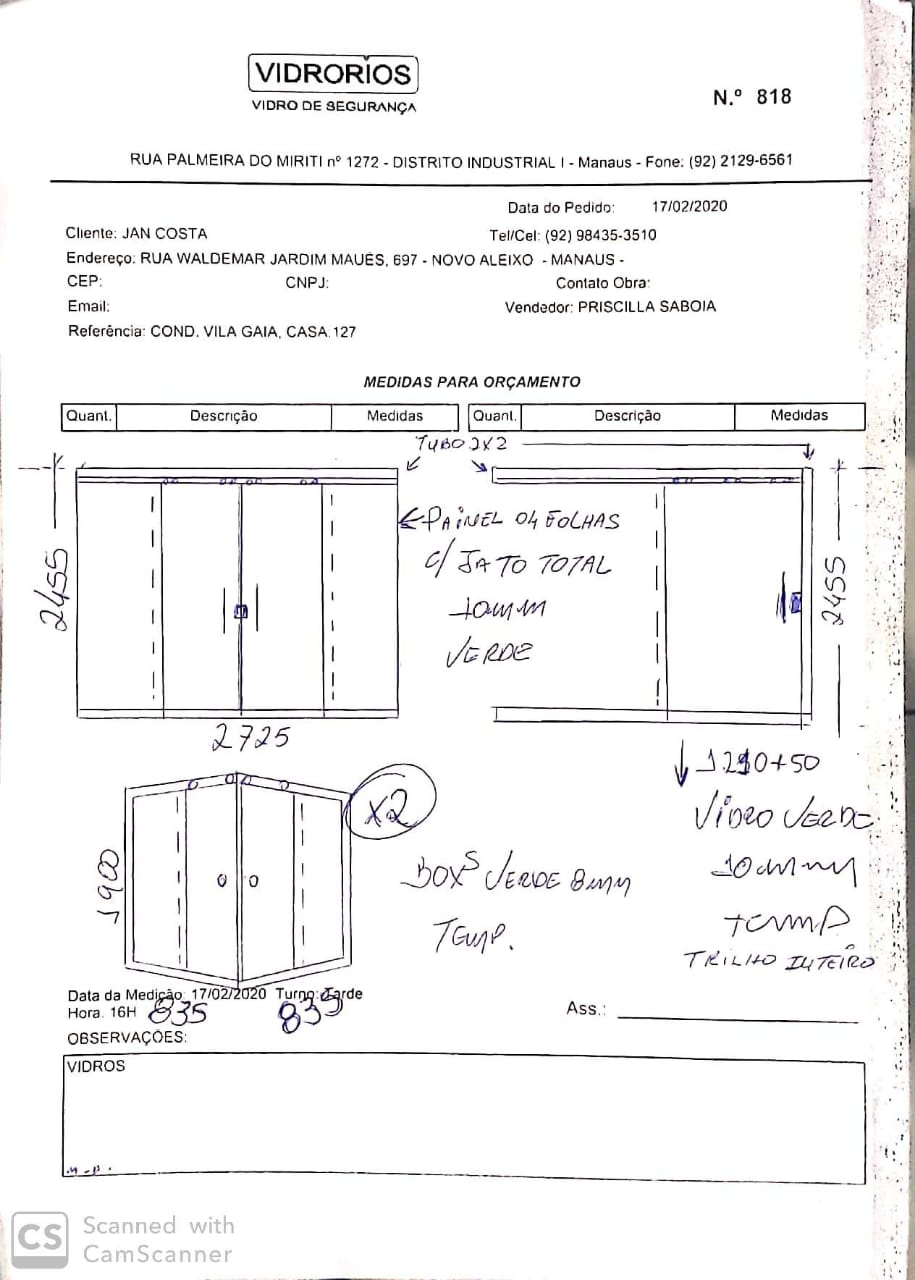 VIDRORIOS
VIDRO DE SEGURANÇA
N.º 818
RUA PALMEIRA DO MIRITI nº 1272 - DISTRITO INDUSTRIAL I - Manaus - Fone: (92) 2129-6561
Data do Pedido: 17/02/2020
Cliente: JAN COSTA Tel/Cel: (92) 98435-3510
Endereço: RUA WALDEMAR JARDIM MAUÉS, 697 - NOVO ALEIXO - MANAUS -
CEP: CNPJ: Contato Obra:
Email: Vendedor: PRISCILLA SABOIA
Referência: COND. VILA GAIA, CASA 127
MEDIDAS PARA ORÇAMENTO
Quant. Descrição Medidas Quant. Descrição Medidas
TUBO 2X2
PAINEL 04 FOLHAS
C/ JATO TOTAL
10MM
VERDE
2455
2455
2725
+50
VIDRO VERDE
10mm
TEMP
TRILHO INTEIRO
X2
1900
BOXS VERDE 8MM
TEMP.
Data da Medição: 17/02/2020 Turno: Tarde
Hora. 16H
835 835
Ass.:
OBSERVAÇÕES:
VIDROS
CS
Scanned with
CamScanner